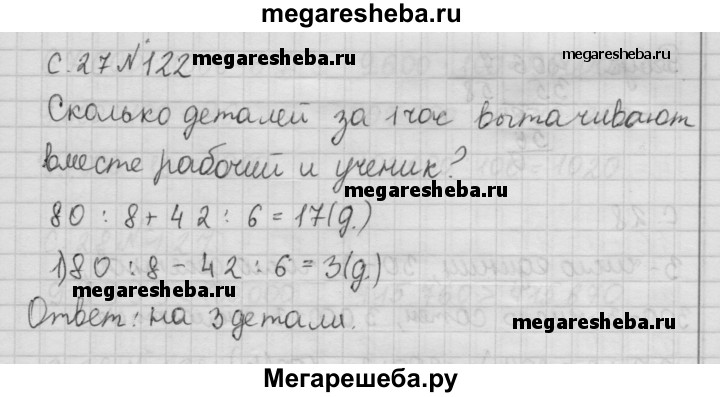 megaresheba.ru
С.27 №122 megaresheba.ru megaresheba.ru
Сколько деталей за 1 час вытачивают
вместе рабочий и ученик?
megaresheba.ru
80 : 8 + 42 : 6 = 17(д.)
1) 80 : 8 - 42 : 6 = 3(д.)
megaresheba.ru
Ответ: на 3 детали.
megaresheba.ru
Мегарешеба.ру